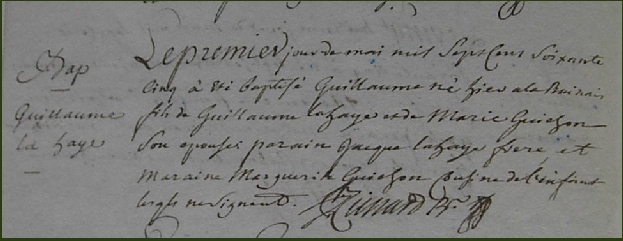 Bap
Guillaume
la haye
Le premier jour de mai mil Sept Cent Soixante
Cinq à été baptisé Guillaume né hier a la
fils de Guillaume lahaye et de Marie Guichon
Son epouse paraine Jacque lahaye frere et
Maraine Marguerite Guichon Cousine de l'enfant
lesqls ne Signent.